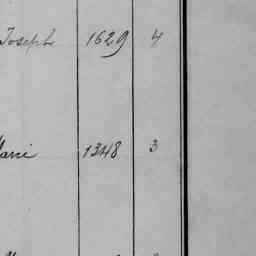 Joseph 1629 4
1348 3